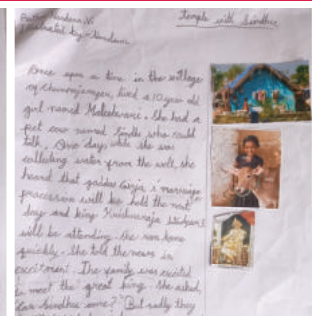 Temple with Sindhu
Once upon a time in the village
lived a 10 year old
girl named She had a
pet cow named Sindhu who could
talk. One day, while she was
collecting water from the well, she
heard that goddess marriage
procession will be held the next
day and king
will be attending. She ran home
quickly. She told the news in
excitement. The family was excited
to meet the great king. She asked,
"Can Sindhu come?" But sadly they